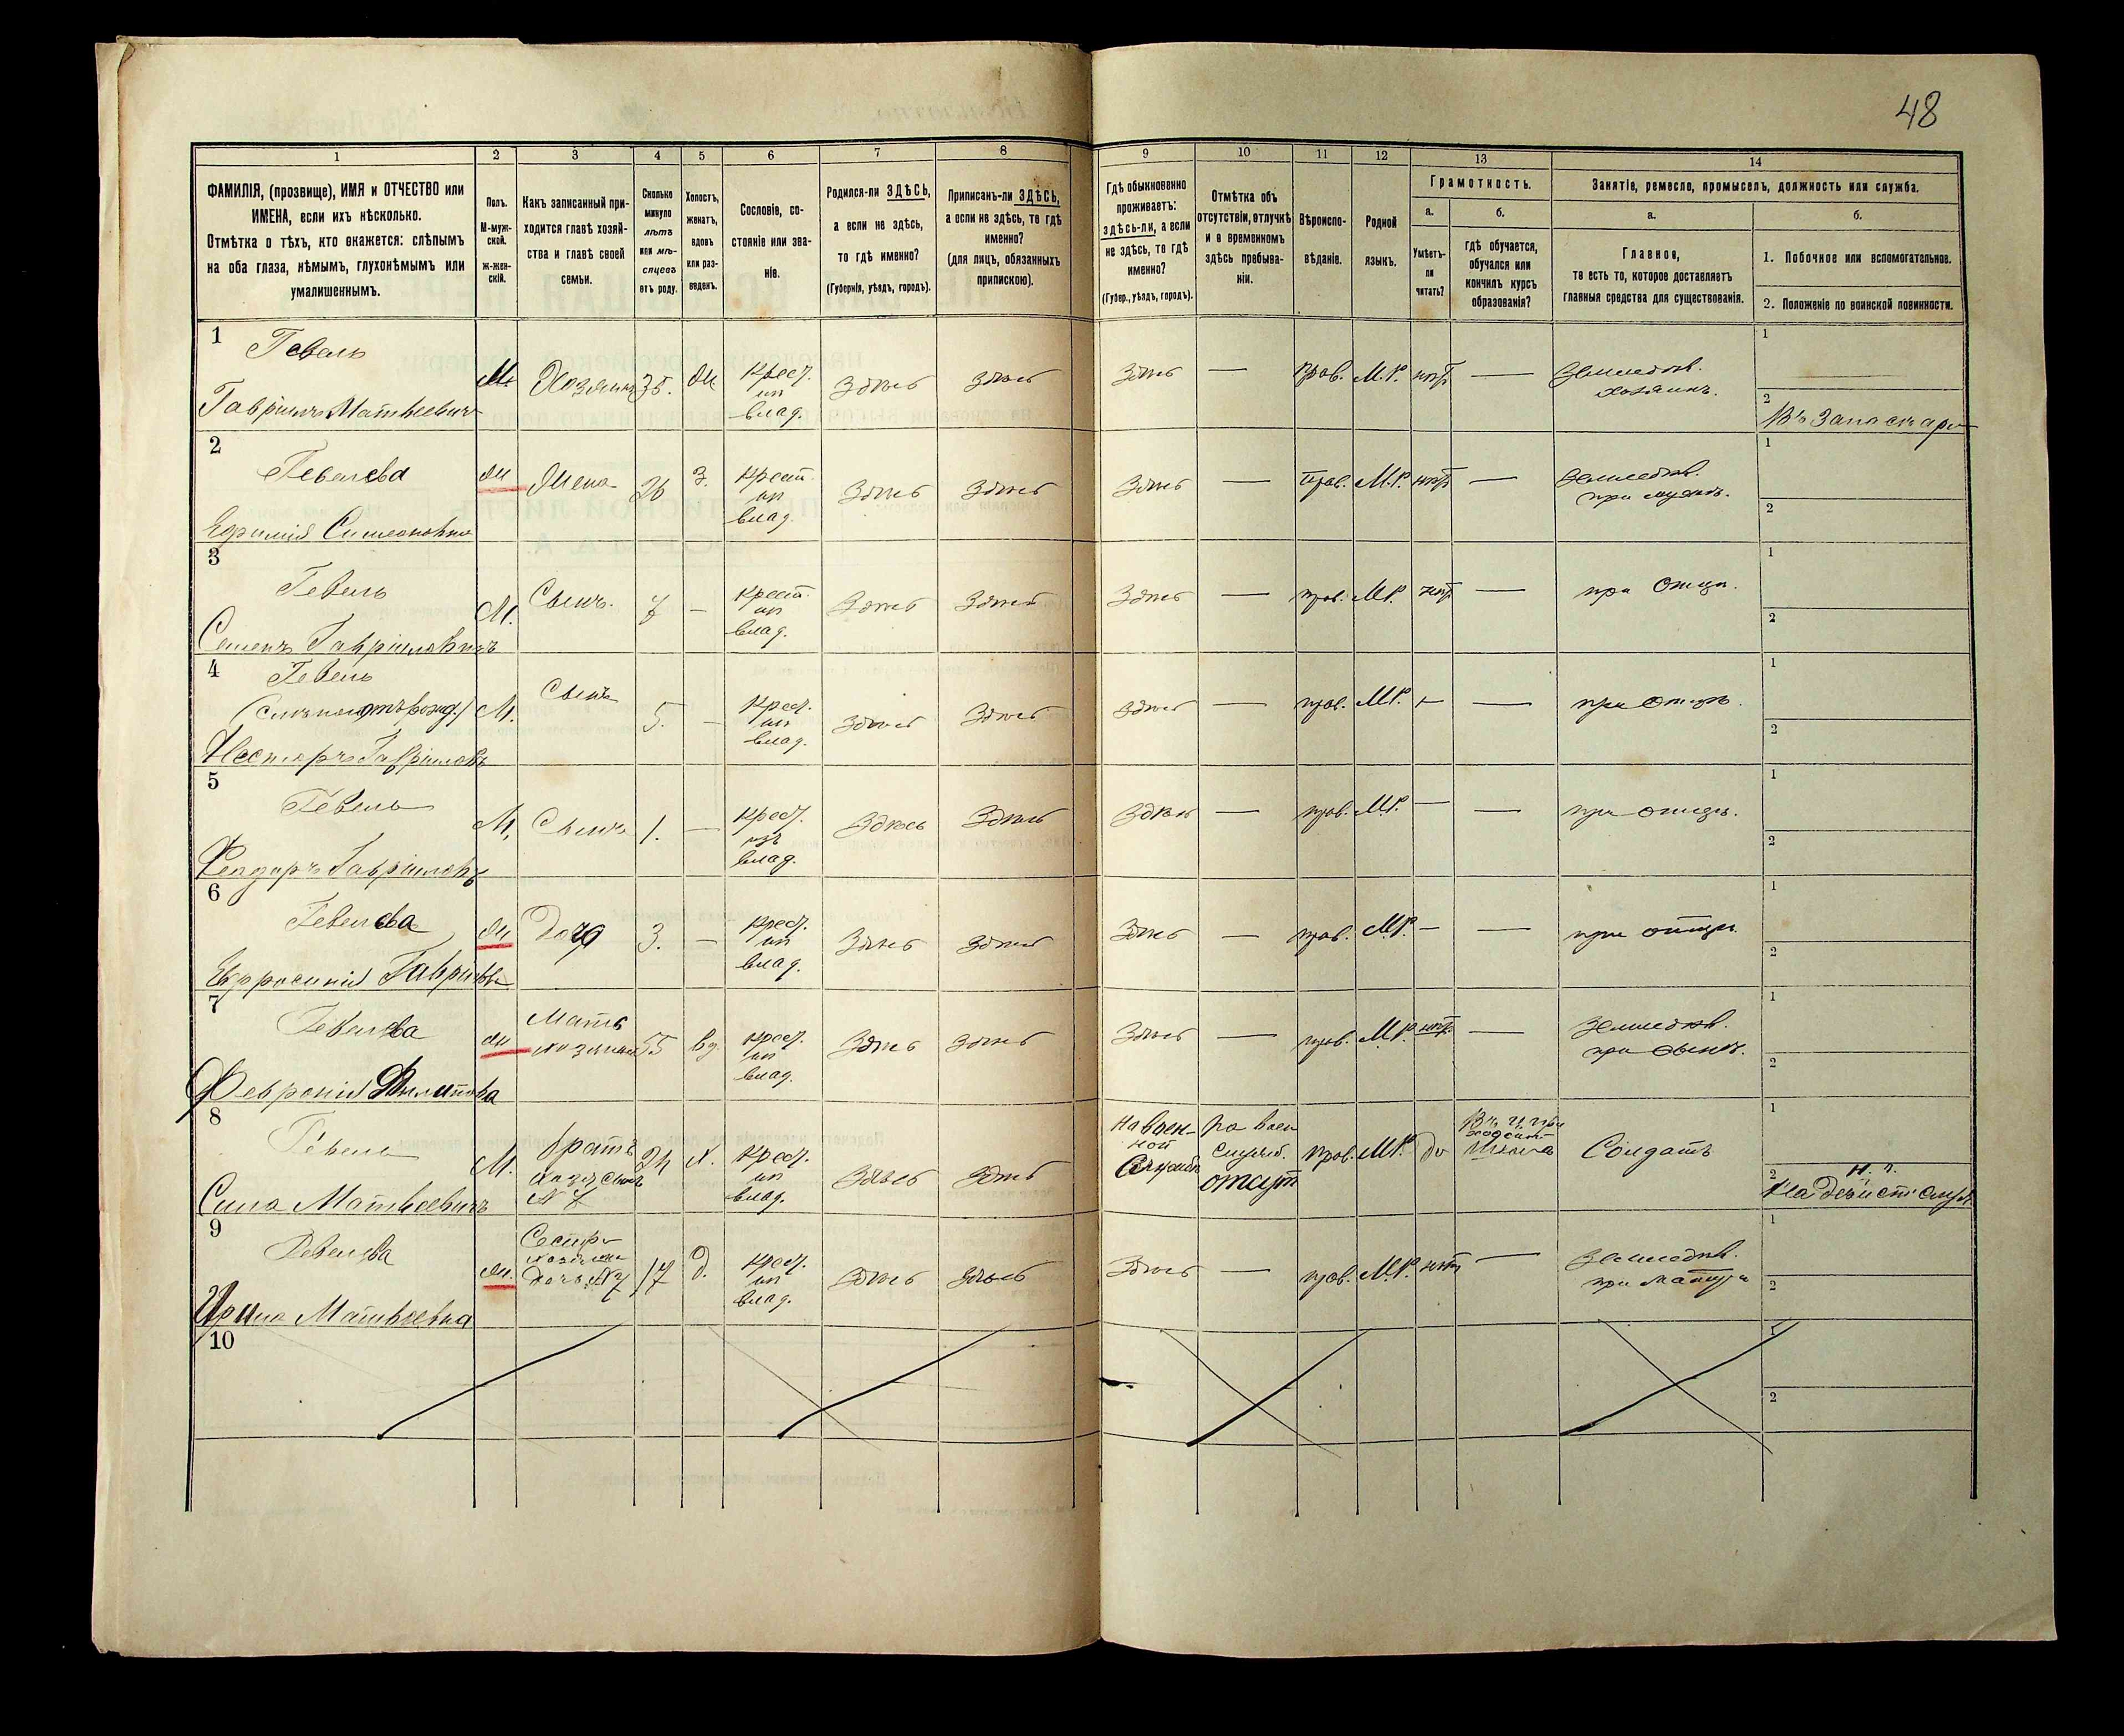 48
1
2
3
4
5
6
7
8
9
10
11
12
13
14
ФАМИЛІЯ, (прозвище), ИМЯ и ОТЧЕСТВО или
ИМЕНА, если ихъ нѣсколько.
Отмѣтка о тѣхъ, кто окажется: слѣпымъ
на оба глаза, нѣмымъ, глухонѣмымъ или
умалишеннымъ.
Полъ.
М-муж-
ской.
ж-жен-
скій.
Какъ записанный при-
ходится главѣ хозяй-
ства и главѣ своей
семьи.
Сколько
минуло
лѣтъ
или мѣ-
сяцевъ
отъ роду.
Холостъ,
женатъ,
вдовъ
или раз-
веденъ.
Сословіе, со-
стояніе или зва-
ніе.
Родился-ли ЗДѢСЬ,
а если не здѣсь,
то гдѣ именно?
(Губернія, уѣздъ, городъ).
Приписанъ-ли ЗДѢСЬ,
а если не здѣсь, то гдѣ
именно?
(для лицъ, обязанныхъ
припискою).
Гдѣ обыкновенно
проживаетъ:
здѣсь-ли, а если
не здѣсь, то гдѣ
именно?
(Губер., уѣздъ, городъ).
Отмѣтка объ
отсутствіи, отлучкѣ
и о временномъ
здѣсь пребыва-
ніи.
Вѣроиспо-
вѣданіе.
Родной
языкъ.
Грамотность.
а.
Умѣетъ-
ли
читать?
б.
Гдѣ обучается,
обучался или
кончилъ курсъ
образованія?
Занятіе, ремесло, промыселъ, должность или служба.
а.
Главное,
то есть то, которое доставляетъ
главныя средства для существованія.
б.
1. Побочное или вспомогательное.
2. Положеніе по воинской повинности.
1
Гевель
Гавріилъ Матвѣевичъ
М.
Хозяинъ
35.
ж
Крест.
из
влад.
Здѣсь
Здѣсь
Здѣсь
—
прав.
М.Р.
нѣт
—
Земледѣл.
хозяинъ.
1
2
Въ Запасѣ ар
2
Гевелева
Симеоновна
ж
Жена
26
з.
Крест.
из
влад.
Здѣсь
Здѣсь
Здѣсь
—
прав.
М.Р.
нѣт
—
Земледѣл.
при мужѣ.
1
2
3
Гевель
Семенъ Гавріиловичъ
М.
Сынъ.
7
—
Крест.
из
влад.
Здѣсь
Здѣсь
Здѣсь
—
прав.
М.Р.
нѣт
—
при Отцѣ.
1
2
4
Гевель
Несторъ Гавріиловъ
М.
Сынъ
5.
—
Крест.
из
влад.
Здѣсь
Здѣсь
Здѣсь
—
прав.
М.Р.
—
—
при отцѣ.
1
2
5
Гевель
Феодоръ Гавріиловъ
М.
Сынъ
1.
—
Крест.
изъ
влад.
Здѣсь
Здѣсь
Здѣсь
—
прав.
М.Р.
—
—
при отцѣ.
1
2
6
Гевелева
Евфросинія
ж
Дочь
3.
—
Крест.
из
влад.
Здѣсь
Здѣсь
Здѣсь
—
прав.
М.Р.
—
—
при отцѣ.
1
2
7
Гевелева
Февронія Филипова
ж
Мать
хозяина
55
вд.
Крест.
из
влад.
Здѣсь
Здѣсь
Здѣсь
—
прав.
М.Р.
нѣт
—
Земледѣл.
при сынѣ.
1
2
8
Гевель
Сила Матвѣевичъ
М.
братъ
хозяина
24
х.
Крест.
из
влад.
Здѣсь
Здѣсь
На воен-
ной
Службѣ
По воен
служб.
отсут
прав.
М.Р.
да
школа
Солдатъ
1
2
На Дѣйст. служ.
9
Гевелева
Ирина Матвѣевна
ж.
Сестра
хозяина
дочь №7
17
д.
Крест.
из
влад.
Здѣсь
Здѣсь
Здѣсь
—
прав.
М.Р.
нѣт
—
Земледѣл.
при матери
1
2
10
1
2